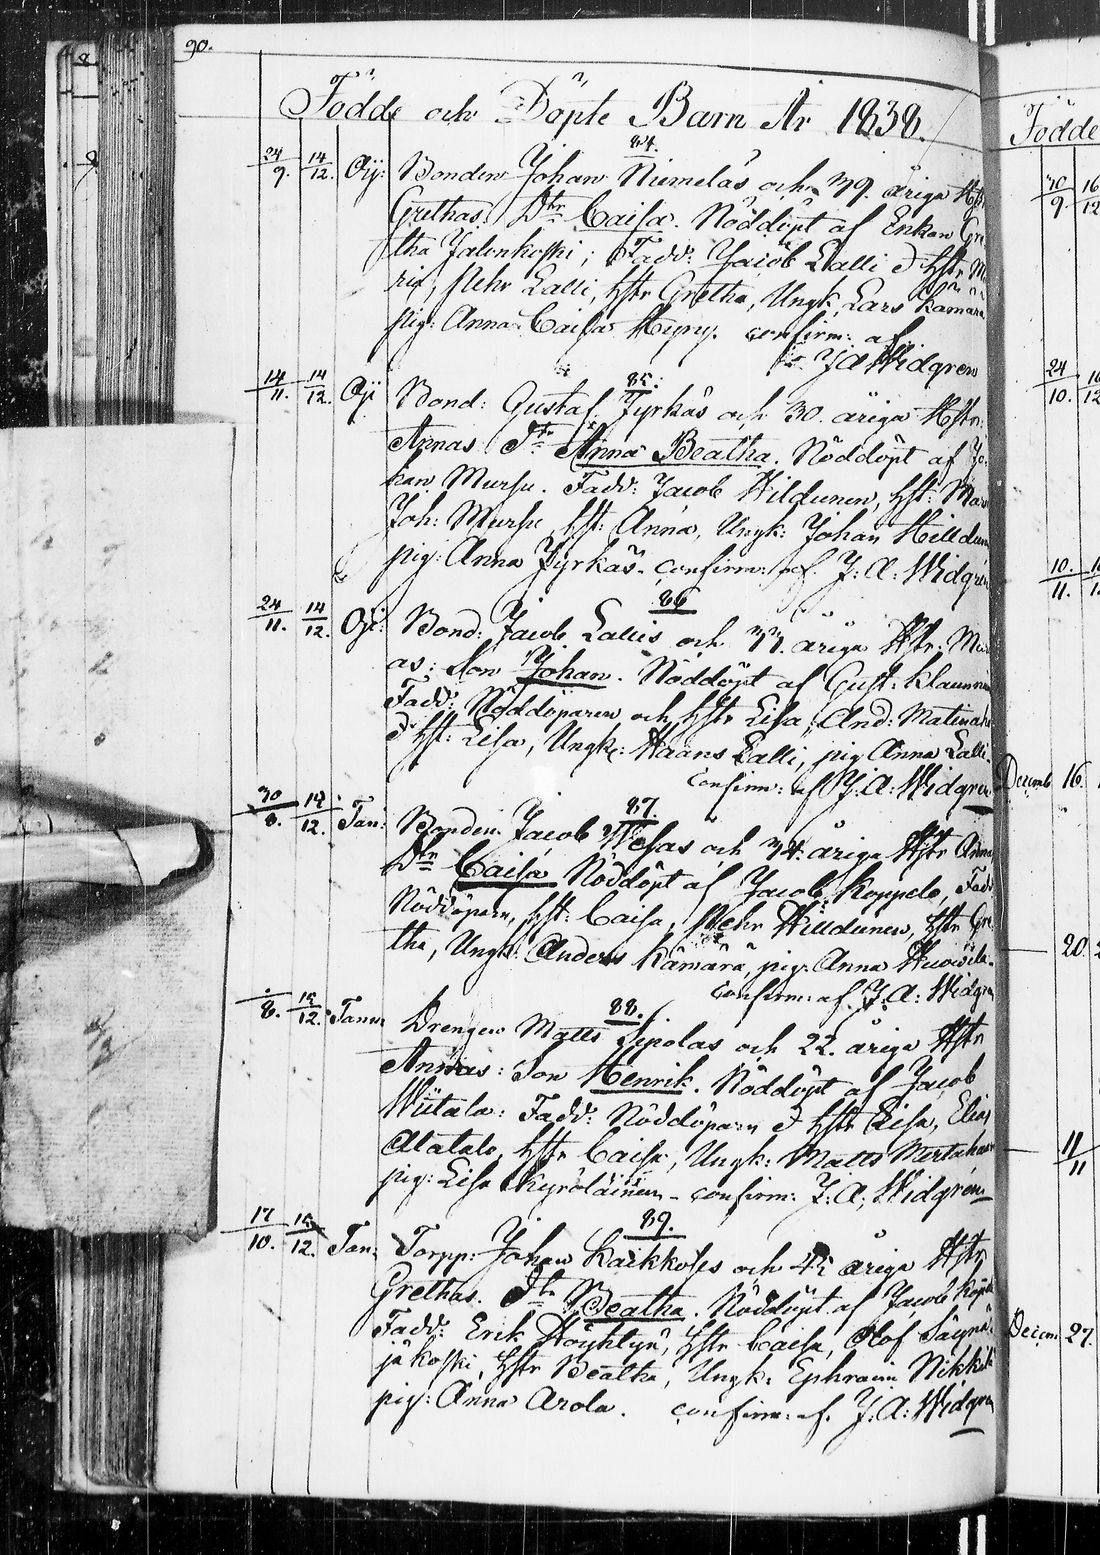 90.
Födde och Döpte Barn År 1838.
84.
24/9. 14/12. Oij: Bonden Johan Niemeläs och 39. åriga Hst:
Grethas. Dtr Caisa. Nöddöpt af Enkan Gre-
tha Jalonkoski; Fadd: Jacob Lalli & hstr Ma
ria, Pehr Lalli, hstr Gretha, Ungk. Lars Kämärä
pig: Anna Caisa Hyry. confirm: af
J A Widgren
85.
14/11. 14/12. Oij Bond: Gustaf Jyrkäs och 30. åriga Hstr:
Annas Dtr Anna Beatha. Nöddöpt af Jo-
han Mursu. Fadd: Jacob Hildunen, hst: Mar
Joh: Mursu, hst: Anna, Ungk: Johan Hilldun
pig: Anna Jyrkäs. confirm: af. J: A: Widgrén
86
24/11. 14/12. Oji: Bond: Jacob Lallis och 33 åriga Hstr: Mari
as: Son Johan. Nöddöpt af Gust: Klaunnen
Fadd: Nöddöparen och hstr Lisa, And: Matinah
& hst: Lisa, Ungk: Haans Lalli, pig Anna Lalli.
Confirm: af J. A: Widgren
87.
30/8. 14/12. Tan: Bonden Jacob Wesas och 34. åriga Hstr Anna
Dtr Caisa Nöddöpt af Jacob Koppelo, Fadd
Nöddöparn, hst: Caisa, Pehr Hilldunen, hstr Gre
tha, Ungk: Anders Kämärä, pig: Anna
confirm: af. J. A: Widgren
88.
8. 15/12. Tann: Drengen Matts Sipolas och 22. åriga Hstr
Annas: Son Henrik. Nöddöpt af Jacob
Wiitala: Fadd: Nöddöparn & hstr Lisa, Elias
Alatalo, hstr Caisa, Ungk: Matts
pig: Lisa Kyröläinen - confirm: J: A: Widgrén
89.
17/10. 15/12. Tan: Torpp: Johan Kaikkoses och 45 åriga Hstr
Grethas. Dtr Beatha. Nöddöpt af Jacob Koppelo
Fadd: Erik Höyhtyä, hstr Caisa, Olof Säynä-
jäkoski, hstr Beatha, Ungk: Ephraim Nikkilä
pig: Anna Arola. confirm: af. J: A: Widgren
Födde
30/9 16/12
24/10.
10./11.
Decemb 16.
20.
11/11
Decem 27.